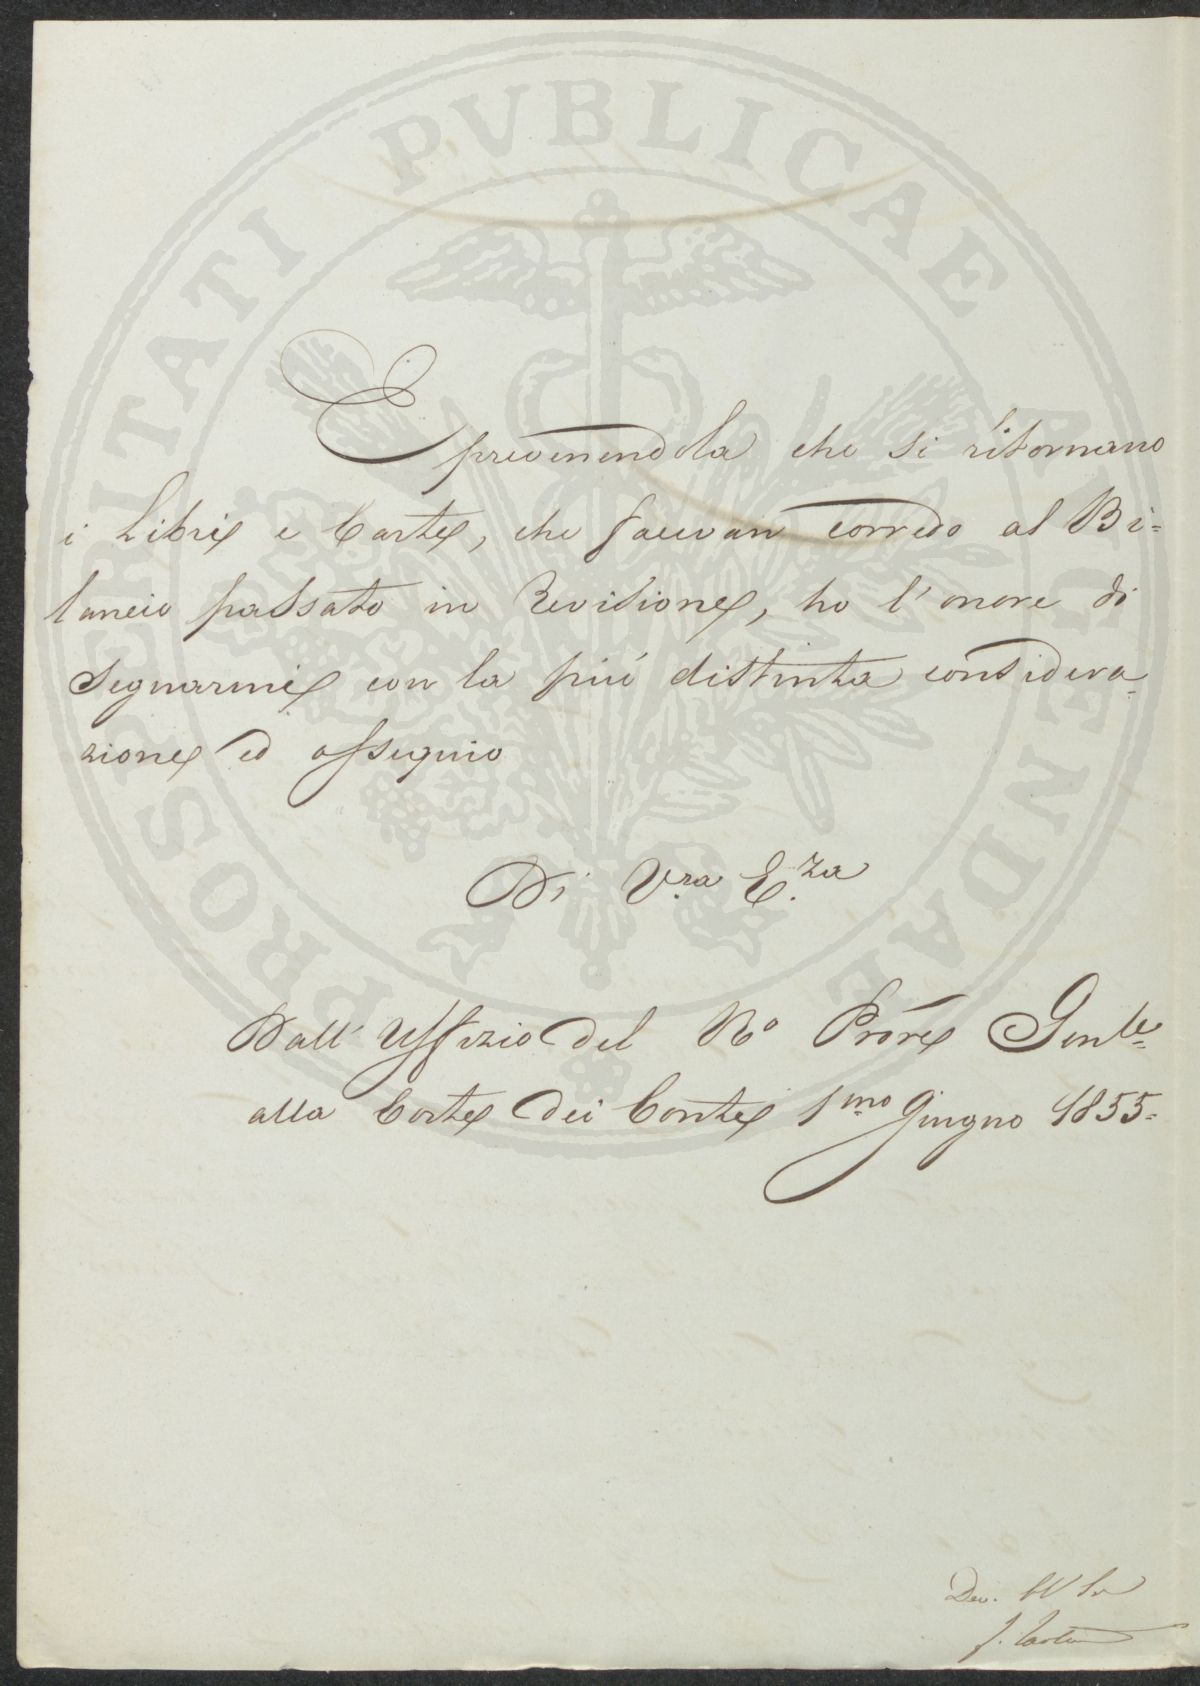 PROSPERITATI PVBLICAE AVGENDAE
E prevenendola che si ritornano
i Libri e Carte, che facevan corredo al Bi=
lancio passato in Revisione, ho l'onore di
segnarmi con la più distinta considera=
zione ed ossequio
Di V.ra E.za
Dall' Uffizio del Ro Prore Genle=
alla Corte dei Conte 1.mo Giugno 1855=
Dev.